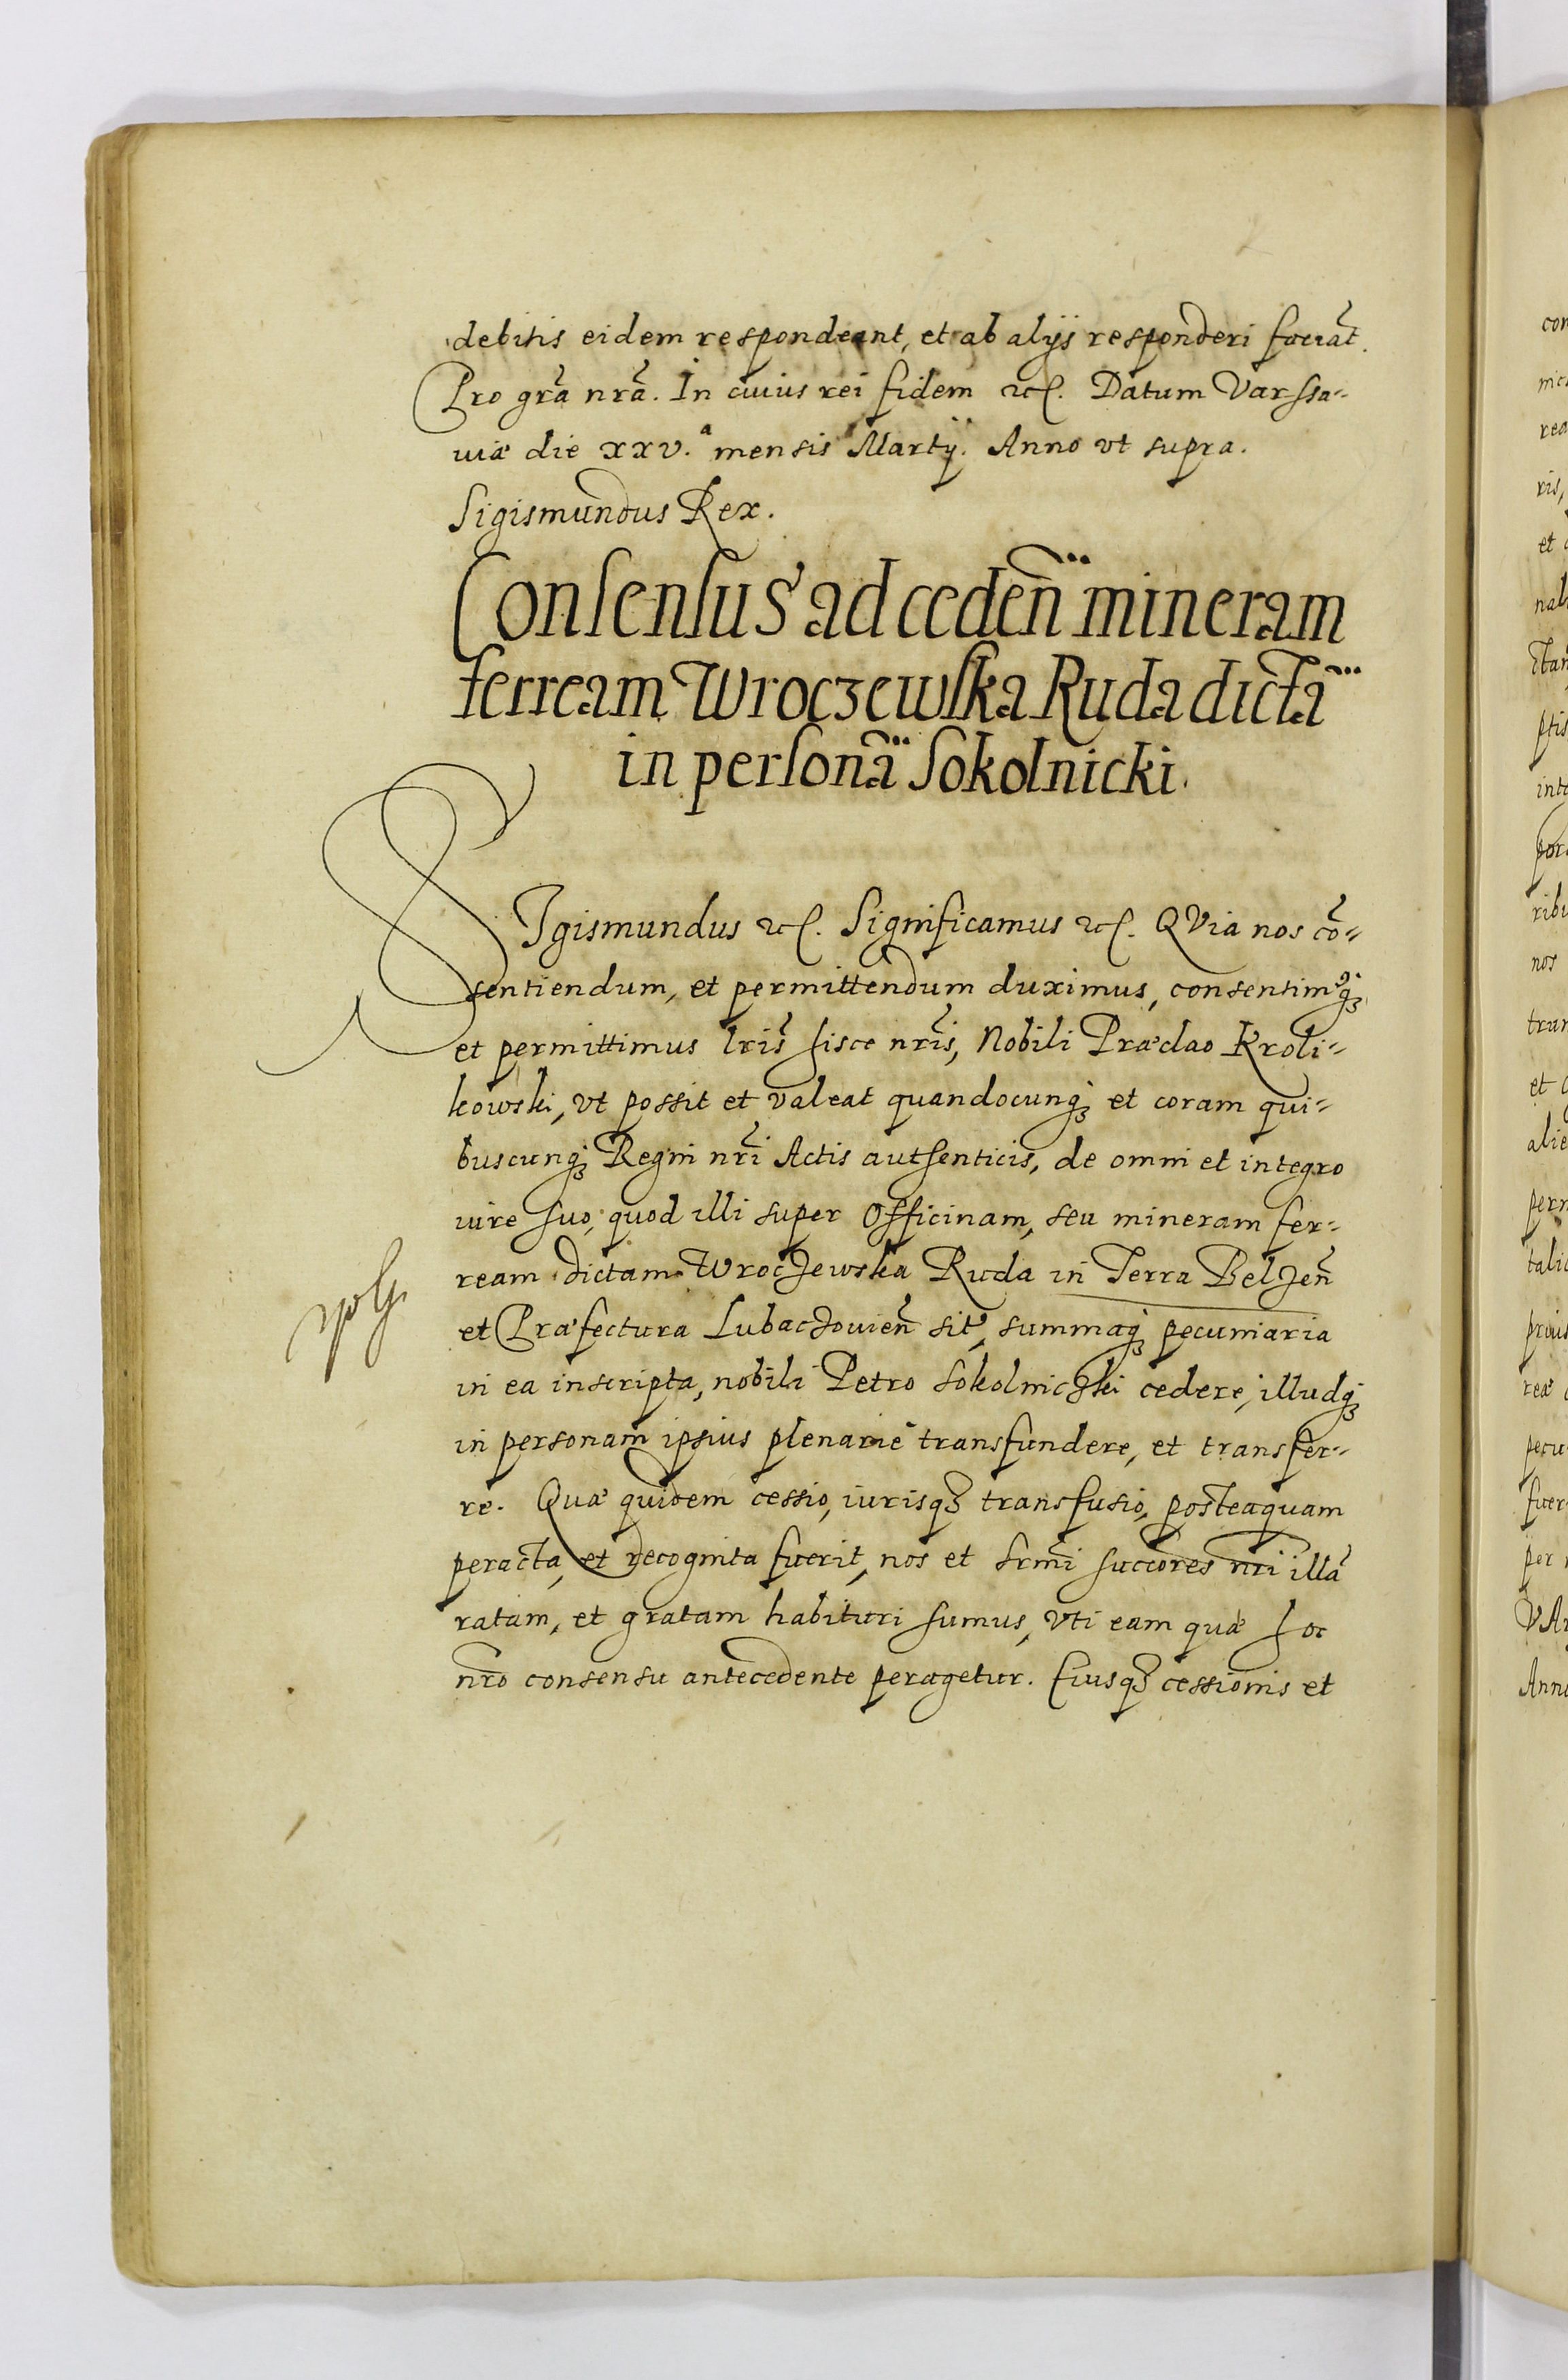 debitis eidem respondeant, et ab alijs responderi faciãt.
Pro grã nrã. In cuius rei fidem etc. Datum Varssa-
uiæ die xxv.ª mensis Martij. Anno vt supra.
Sigismundus Rex.
Consensus ad ceden̄ mineram
ferream Wroczewska Ruda dictã
in personã Sokolnicki.
SIgismundus etc. Significamus etc. QVia nos cõ-
sentiendum, et permittendum duximus, consentimꝰqꝫ
et permittimus lris̃ hisce nris̃, Nobili Prædao Kroli-
kowski, vt possit et valeat quandocunqꝫ et coram qui-
buscunqꝫ Regni nrĩ Actis authenticis, de omni et integro
iure suo, quod illi super Officinam, seu mineram fer-
ream dictam Wroczewska Ruda in Terra Belzen̄
et Præfectura Lubaczouien̄ sit̃, summaqꝫ pecuniaria
in ea inscripta, nobili Petro Sokolniczki cedere, illudqꝫ
in personam ipsius plenariè transfundere, et transfer-
re. Quæ quidem cessio, iurisqꝫ transfusio, posteaquam
peracta, et recognita fuerit, nos et srmĩ succõres nrĩ illã
ratam, et gratam habituri sumus, vti eam quæ hoc
nr̃o consensu antecedente peragetur. Eiusqꝫ cessionis et
con
rea
ris,
et
nab
ptis
inte
por
ribu
nos
tran
et
alie
perm
talic
reæ
pecu
fuer
per
VAr
Anno